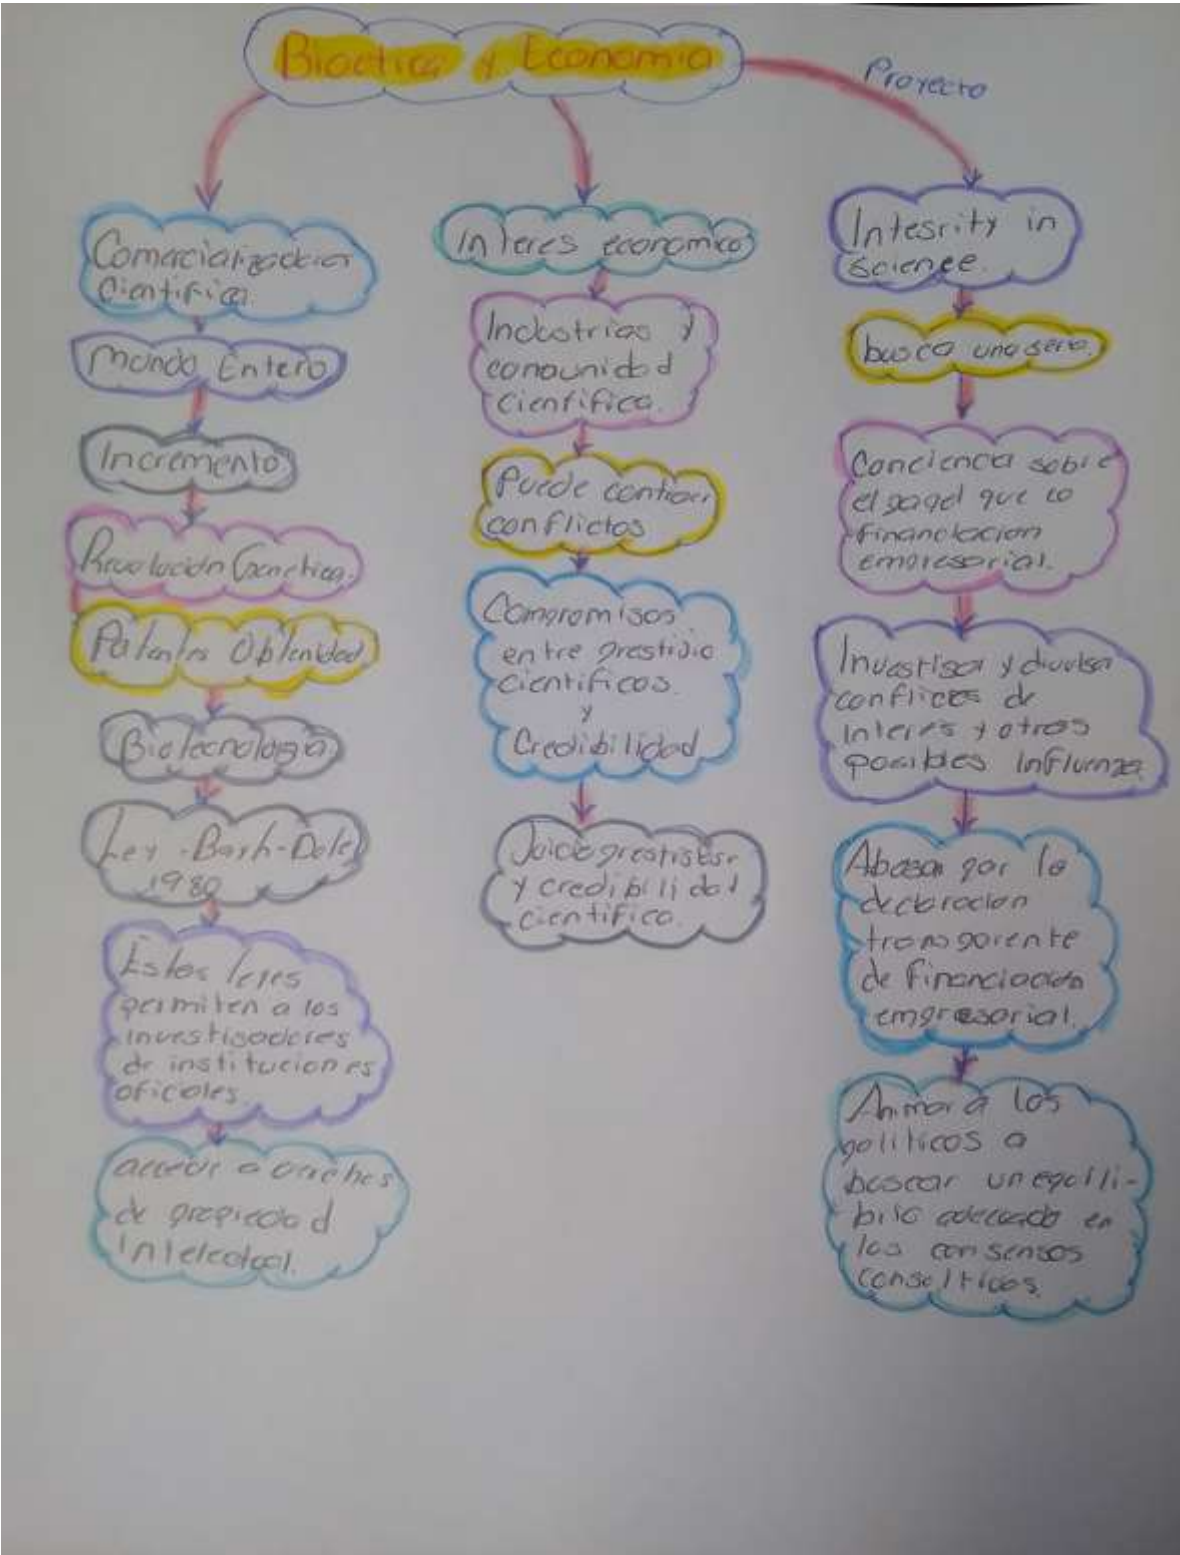 Bioetica y Economia
Proyecto
Comercialización
Cientifica.
Mundo Entero
Incremento
Revolución Genetica.
Patentes Obtenidad
Biotecnologia
Ley -Bayh-Dole
1980
Estas leyes
permiten a los
investigadores
de instituciones
oficiales.
acceder a
de propiedad
Intelectual.
Interes economico
Industrias y
comunidad
Cientifica.
Puede contraer
conflictos
Compromisos
entre prestigio
cientificos.
y
Credibilidad
Juicio
y credibilidad
cientifica.
Integrity in
science.
busca una serie.
Conciencia sobre
el papel que la
financiacion
empresarial.
Investigar y
conflictos de
interes y otros
posibles influenza
Abogar por la
declaracion
transparente
de financiacion
empresarial.
Animar a los
politicos a
buscar un equili-
brio adecuado en
los consensos
consultivos.